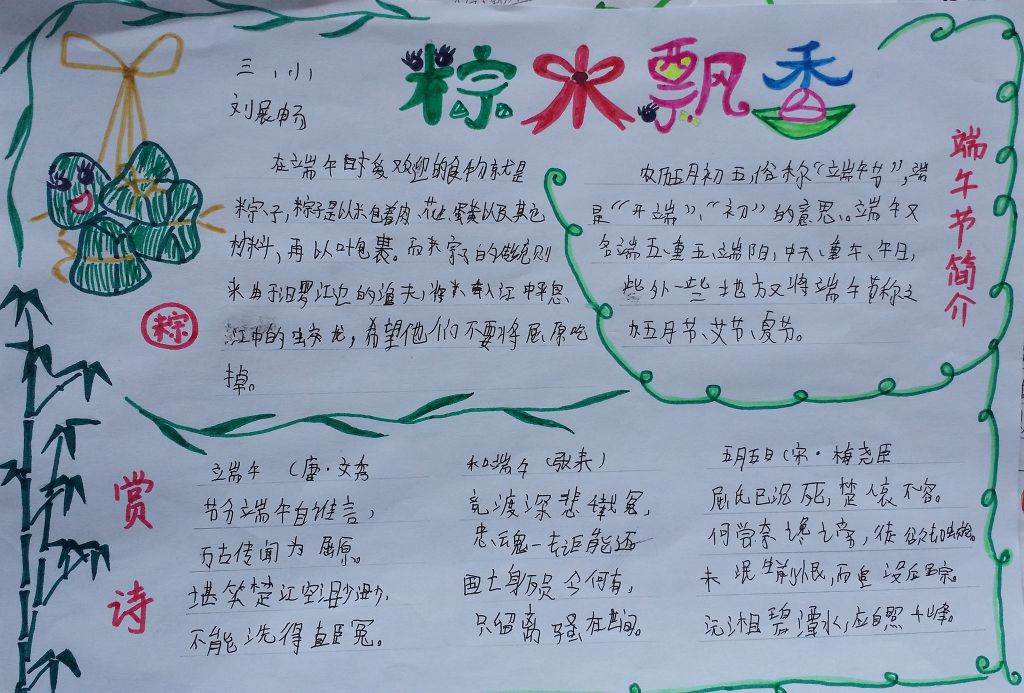 粽米飘香
三，小，
刘展畅
在端午时受欢迎的食物就是
粽子，粽子是以米包着肉、花生、蛋黄以及其它
材料，再以叶包裹。而米宗子的做则
来由于汨罗江边的渔夫，将米奉入江中平息
江中的蛟龙，希望他们不要将屈原吃
掉。
粽
农历五月初五，俗称“端午节”，端
是“开端”、“初”的意思。端午又
名端五、重五、端阳、中天、重午、午日，
些外一些地方又将端午节称之
为五月节、艾节、夏节。
端午节简介
赏诗
端午（唐·文秀
节分端午自谁言，
万古传闻为屈原。
堪笑楚江空渺渺，
不能洗得直臣冤。
和端午（张耒）
竞渡深悲千载冤，
忠魂一去讵能还
国亡身殒今何有，
只留离骚在世间。
五月五日（宋·梅尧臣
屈氏已沉死，楚人哀不容。
何尝奈谗谤，徒欲却蛟龙。
未泯生前恨，而追没后踪。
沅湘碧潭水，应自照千峰。